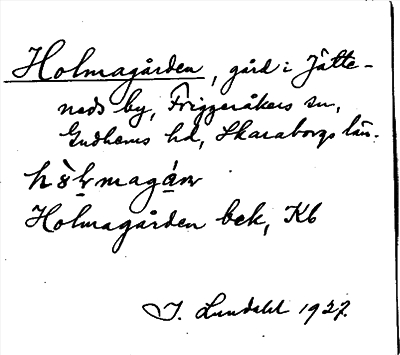 Holmagården, gård i Jätte-
neds by, Friggeråkers sn,
Gudhems hd, Skaraborgs län.
Holmagården bek, Kb
I. Lundahl 1927.